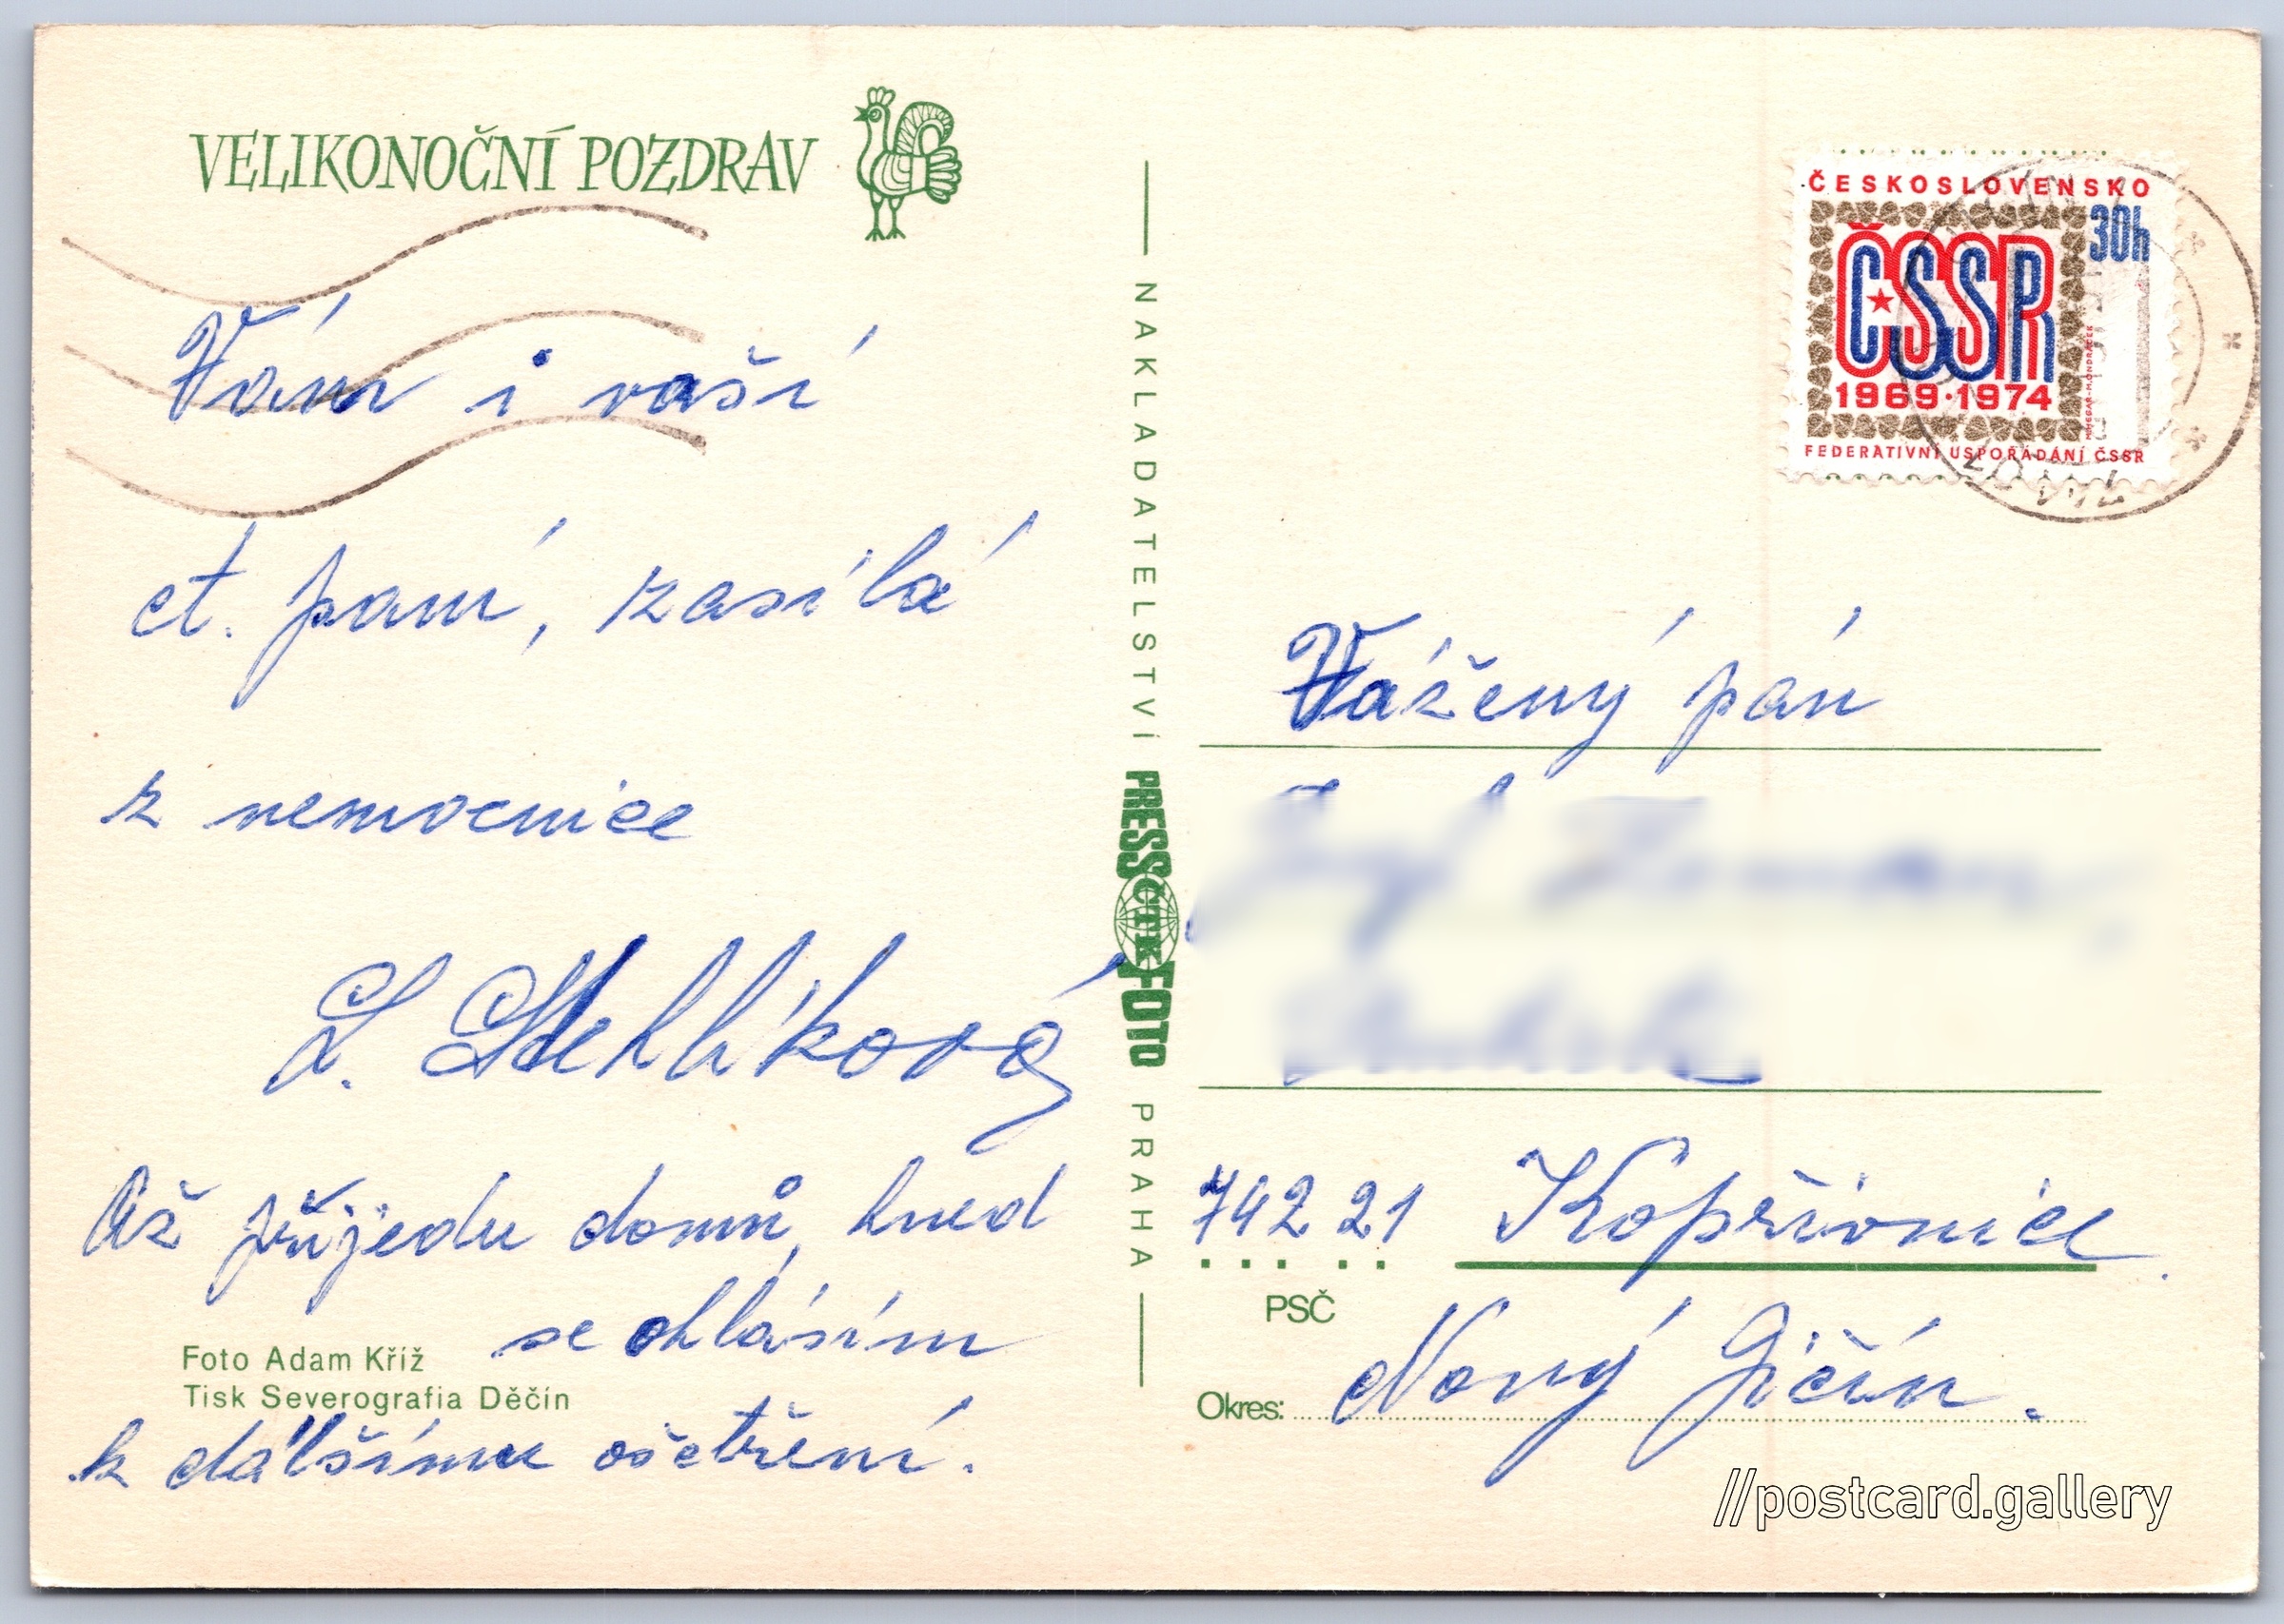 VELIKONOČNÍ POZDRAV
Vám i vaší
ct. paní, zasílá
z nemocnice
L. Stehlíková
Až přijedu domů, hned
se ohlásím
k dálšímu ošetření.
Foto Adam Kříž
Tisk Severografia Děčín
NAKLADATELSTVÍ PRESSČTKFOTO PRAHA
ČESKOSLOVENSKO
30h
ČSSR
1969·1974
FEDERATIVNÍ USPOŘÁDÁNÍ ČSSR
Vážený pán
742 21 Kopřivnice
PSČ
Okres: Nový Jičín.
//postcard.gallery